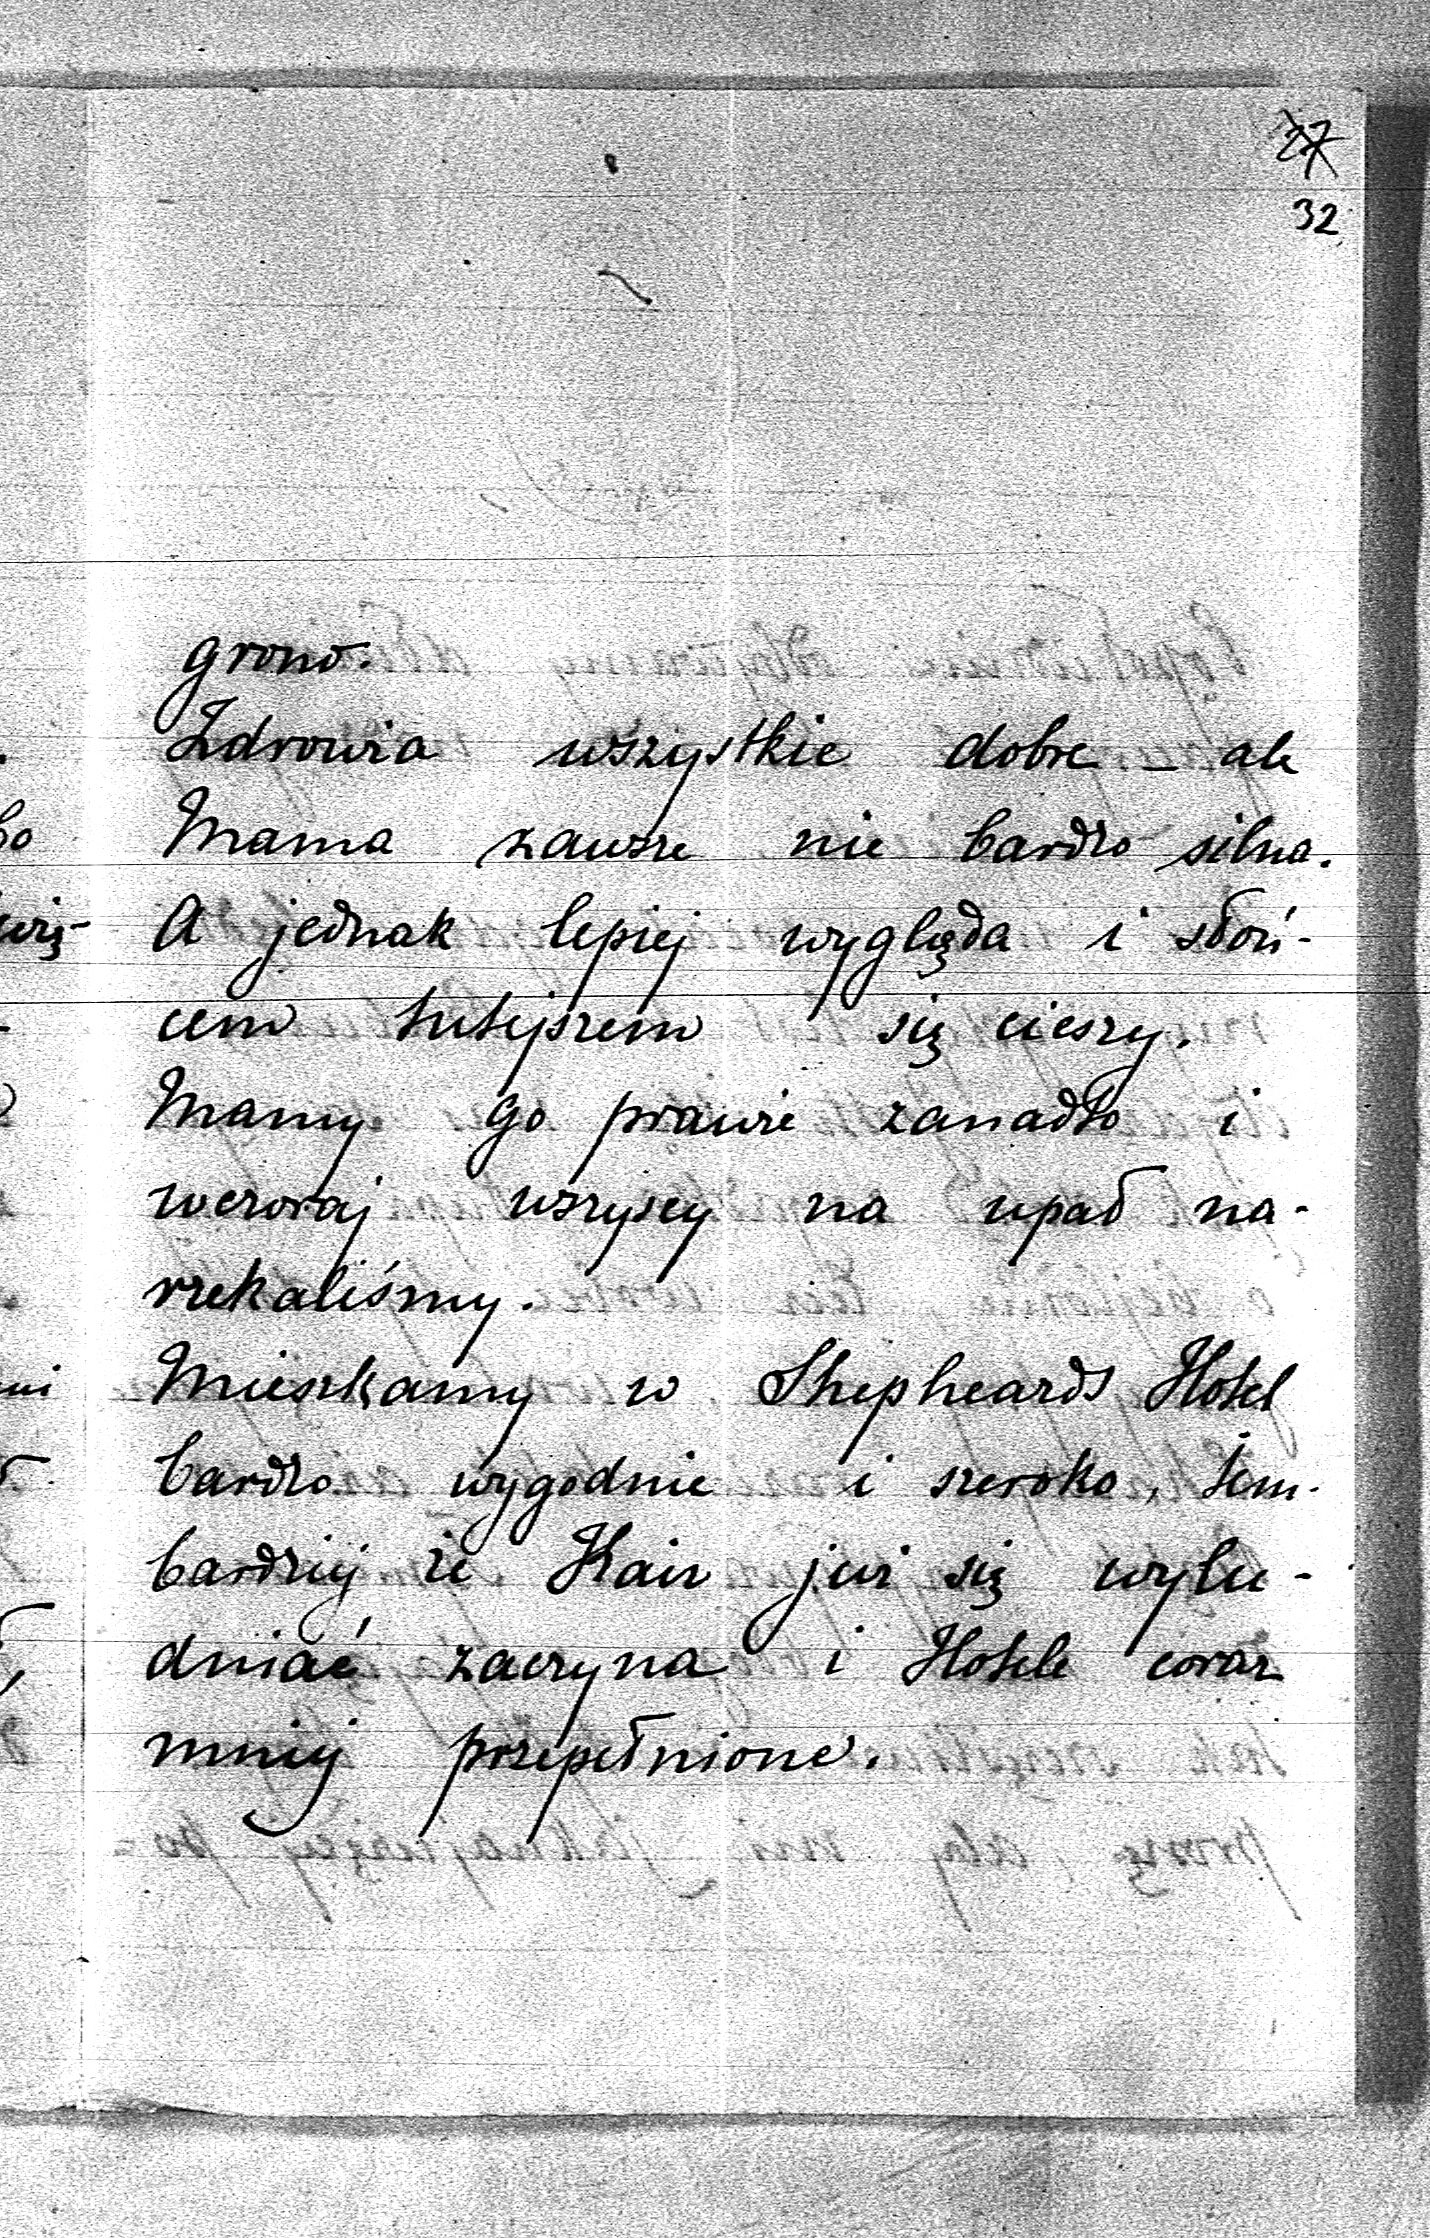 27
32
grono.
Zdrowia wszystkie dobre – ale
Mama zawsze nie bardzo silna.
A jednak lepiej wygląda i słoń-
cem tutejszem się cieszy.
Mamy go prawie zanadto i
wczoraj wszyscy na upał na-
rzekaliśmy.
Mieszkamy w Shepheards Hotel
bardzo wygodnie i szeroko, tem-
bardziej że Kair już się wylu-
dniać zaczyna i Hotele coraz
mniej przepełnione.